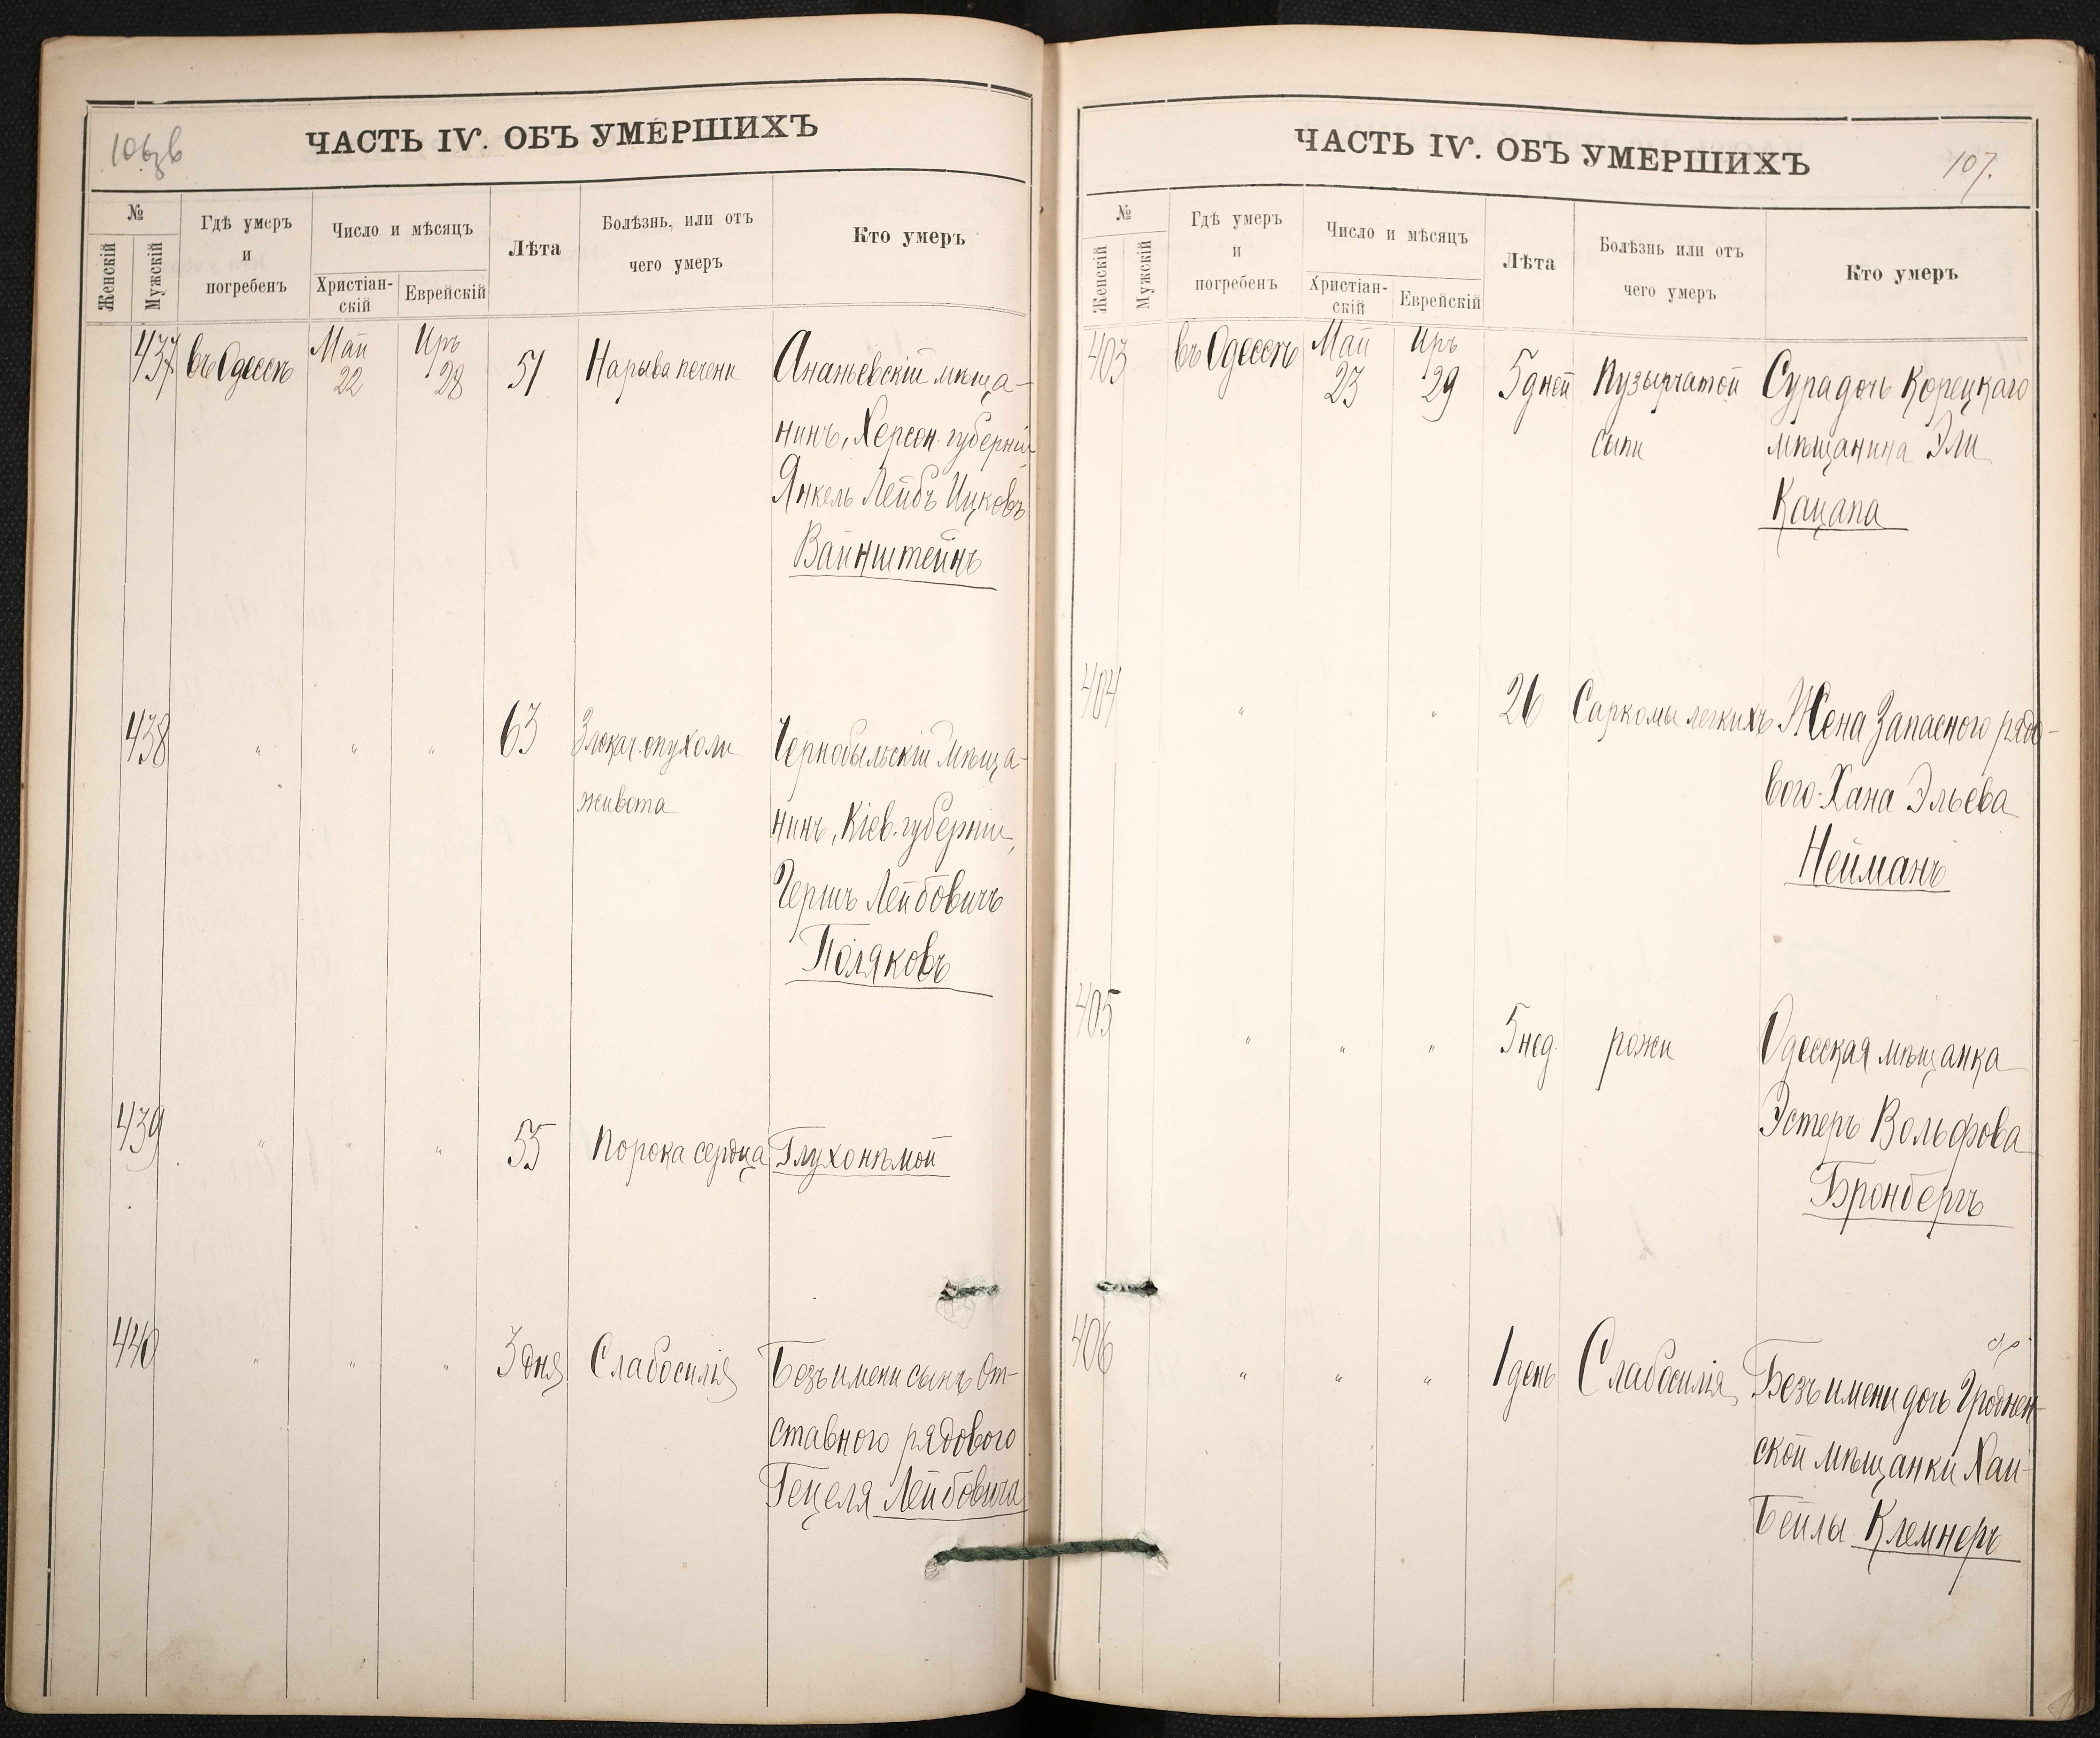 106зв
ЧАСТЬ IV. ОБЪ УМЕРШИХЪ
№
Женскій
Мужскій
Гдѣ умеръ
и
погребенъ
Число и мѣсяцъ
Христіан-
скій
Еврейскій
Лѣта
Болѣзнь, или отъ
чего умеръ
Кто умеръ
437 въ Одессѣ Май 22 Иръ 28 51 Нарыва печени Ананьевскій мѣща-
нинъ, Херсон. губерніи,
Янкель Лейбъ Ицковъ
Вайнштейнъ
438 " " " 63 Злокач. опухоли Чернобыльскій мѣща-
живота
нинъ, Кіев. губерніи,
Гершъ Лейбовичъ
Поляковъ
439 " " " 55 Порока сердца Глухонѣмой
440 " " " 3 дня Слабосилія Безъ имени сынъ от-
ставного рядового
Гецеля Лейбовича
ЧАСТЬ IV. ОБЪ УМЕРШИХЪ
107.
№
Женскій
Мужскій
Гдѣ умеръ
и
погребенъ
Число и мѣсяцъ
Христіан-
скій
Еврейскій
Лѣта
Болѣзнь или отъ
чего умеръ
Кто умеръ
403 въ Одессѣ Май 23 Иръ 29 5 дней Пузырчатой Сура дочь Корецкаго
сыпи мѣщанина Эли
Кацапа
404 " " 26 Саркомы легкихъ Жена Запасного рядо-
вого Хана Эльева
Нейманъ
405 " " " 5 нед. рожи Одесская мѣщанка
Эстеръ Вольфова
Бронбергъ
406 " " " 1 день Слабосилія Безъ имени дочь Гроднен-
ской мѣщанки Хаи-
Бейлы Клемнеръ